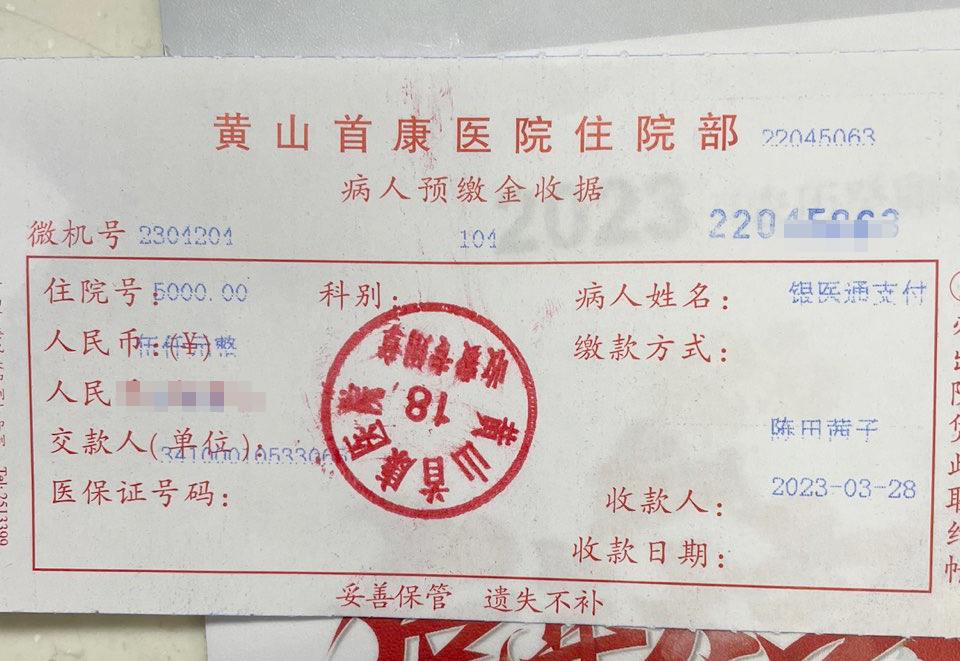 黄山首康医院住院部 22045063
病人预缴金收据
微机号 2304204 104
住院号: 5000.00 科别: 病人姓名: 银医通支付
人民币:(¥) 伍仟元整 缴款方式:
人民
陈田茜子
交款人(单位):
医保证号码: 2023-03-28
收款人:
收款日期:
妥善保管 遗失不补
黄山首康医院
18
收费专用章